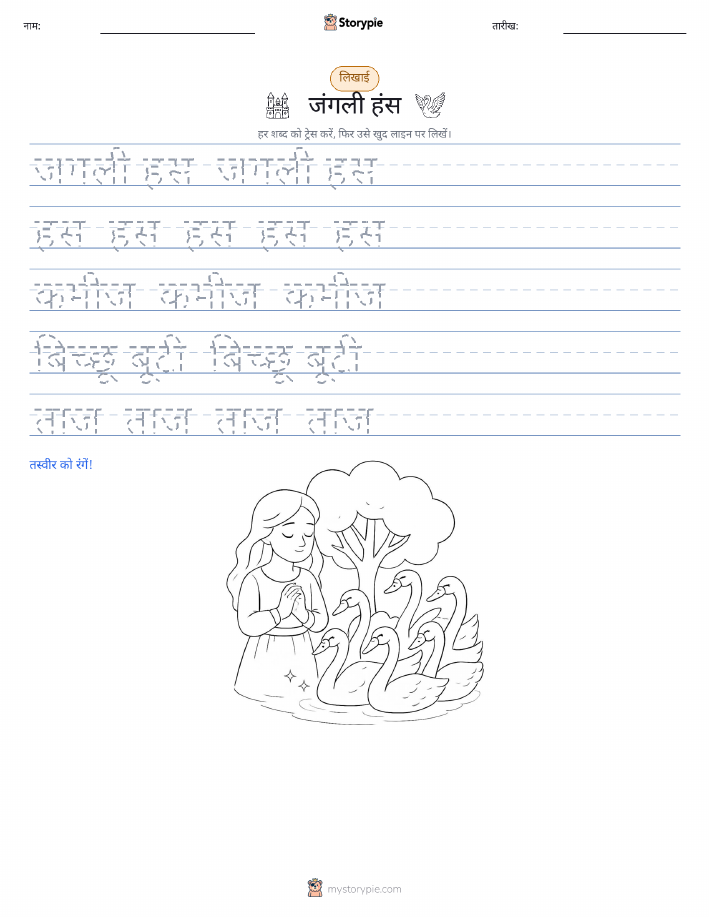 नाम:
Storypie
तारीख:
लिखाई
जंगली हंस
हर शब्द को ट्रेस करें, फिर उसे खुद लाइन पर लिखें।
जगली हस जगली हस
हस हस हस हस हस
कमीज कमीज कमीज
बिच्छू बूटी बिच्छू बूटी
ताज ताज ताज ताज
तस्वीर को रंगें!
mystorypie.com